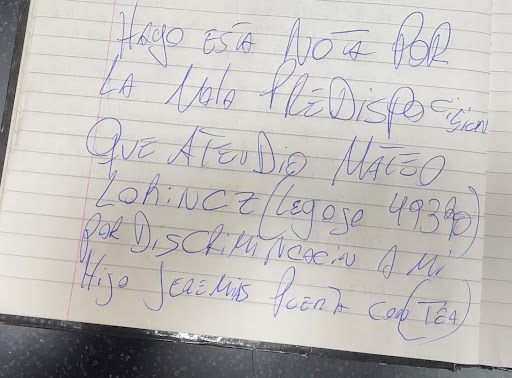 HAGO ESTA NOTA POR
LA MALA PREDISPOSICIÓN
QUE ATENDIO MATEO
LORINCZ (LEGAJO 49390)
POR DISCRIMINCACIÓN A MI
HIJO JEREMIAS PUERTA CON (TEA)